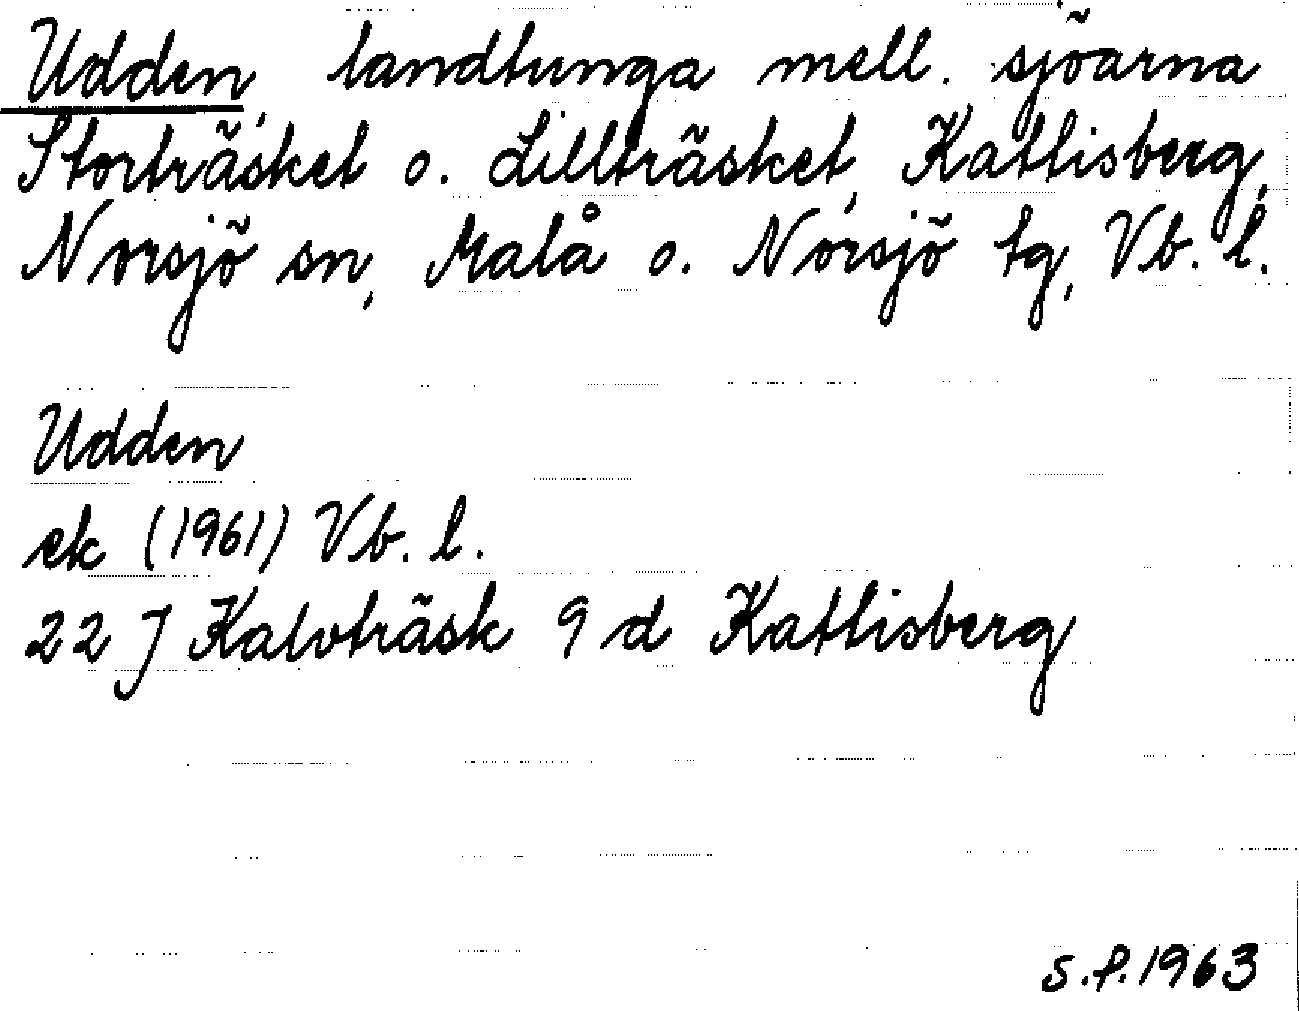 Udden, landtunga mell. sjöarna
Storträsket o. Lillträsket, Kattisberg,
Norsjö sn, Malå o. Norsjö tg, Vb. l.
Udden
ek (1961) Vb. l.
22 J Kalvträsk 9 d Kattisberg
S.P. 1963